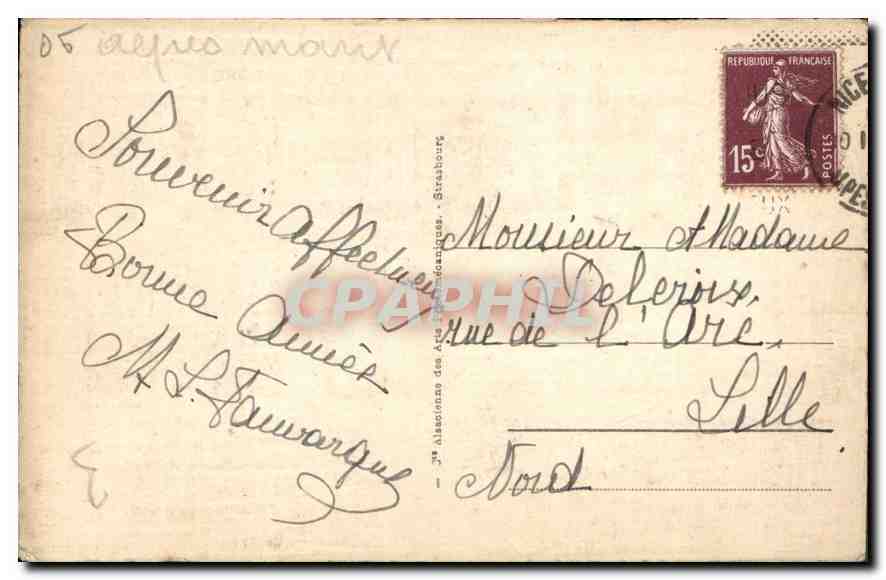 06 alpes marit
RÉPUBLIQUE FRANÇAISE
15c
POSTES
NICE
Souvenir affectueux
Bonne Année
M L. Fauvarque
Cie Alsacienne des Arts Photomécaniques. - Strasbourg
CPAPHIL
Monsieur et Madame
Deleroix,
rue de l'Arc,
Lille
Nord